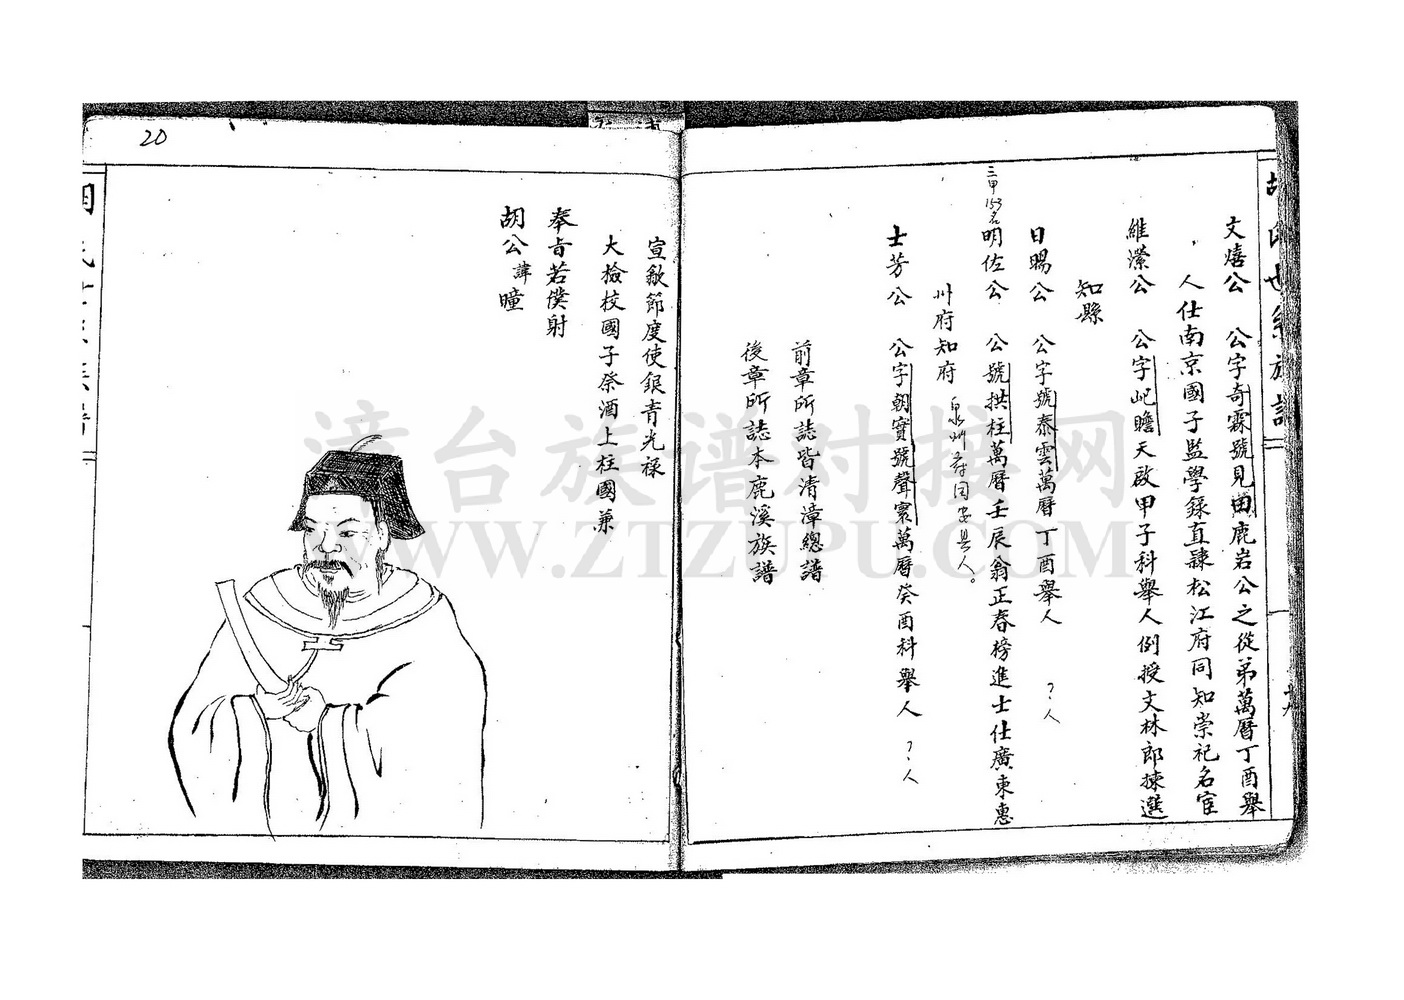 胡氏世系族譜
文熺公 公字奇霖號見田鹿岩公之從弟萬曆丁酉舉
人仕南京國子監學錄直隸松江府同知崇祀名宦
維濚公 公字屺瞻天啟甲子科舉人例授文林郎揀選
知縣
日暘公 公字號泰雲萬曆丁酉舉人 ??人
三甲153名
明佐公 公號拱柱萬曆壬辰翁正春榜進士仕廣東惠
州府知府 泉州府同安縣人。
士芳公 公字朝寶號聲寰萬曆癸酉科舉人 ??人
前章所誌皆清漳總譜
後章所誌本鹿溪族譜
20
宣歙節度使銀青光祿
大檢校國子祭酒上柱國兼
奉旨若僕射
胡公諱曈
漳台族谱对接网
WWW.ZTZUPU.COM